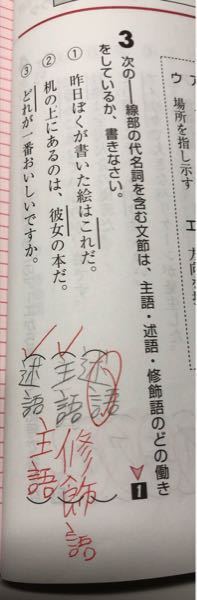 場所を指し示す
3 次の――線部の代名詞を含む文節は、主語・述語・修飾語のどの働き
をしているか、書きなさい。
1
① 昨日ぼくが書いた絵はこれだ。
② 机の上にあるのは、彼女の本だ。
③ どれが一番おいしいですか。
(述語)
(主語)修飾語
(述語)主語